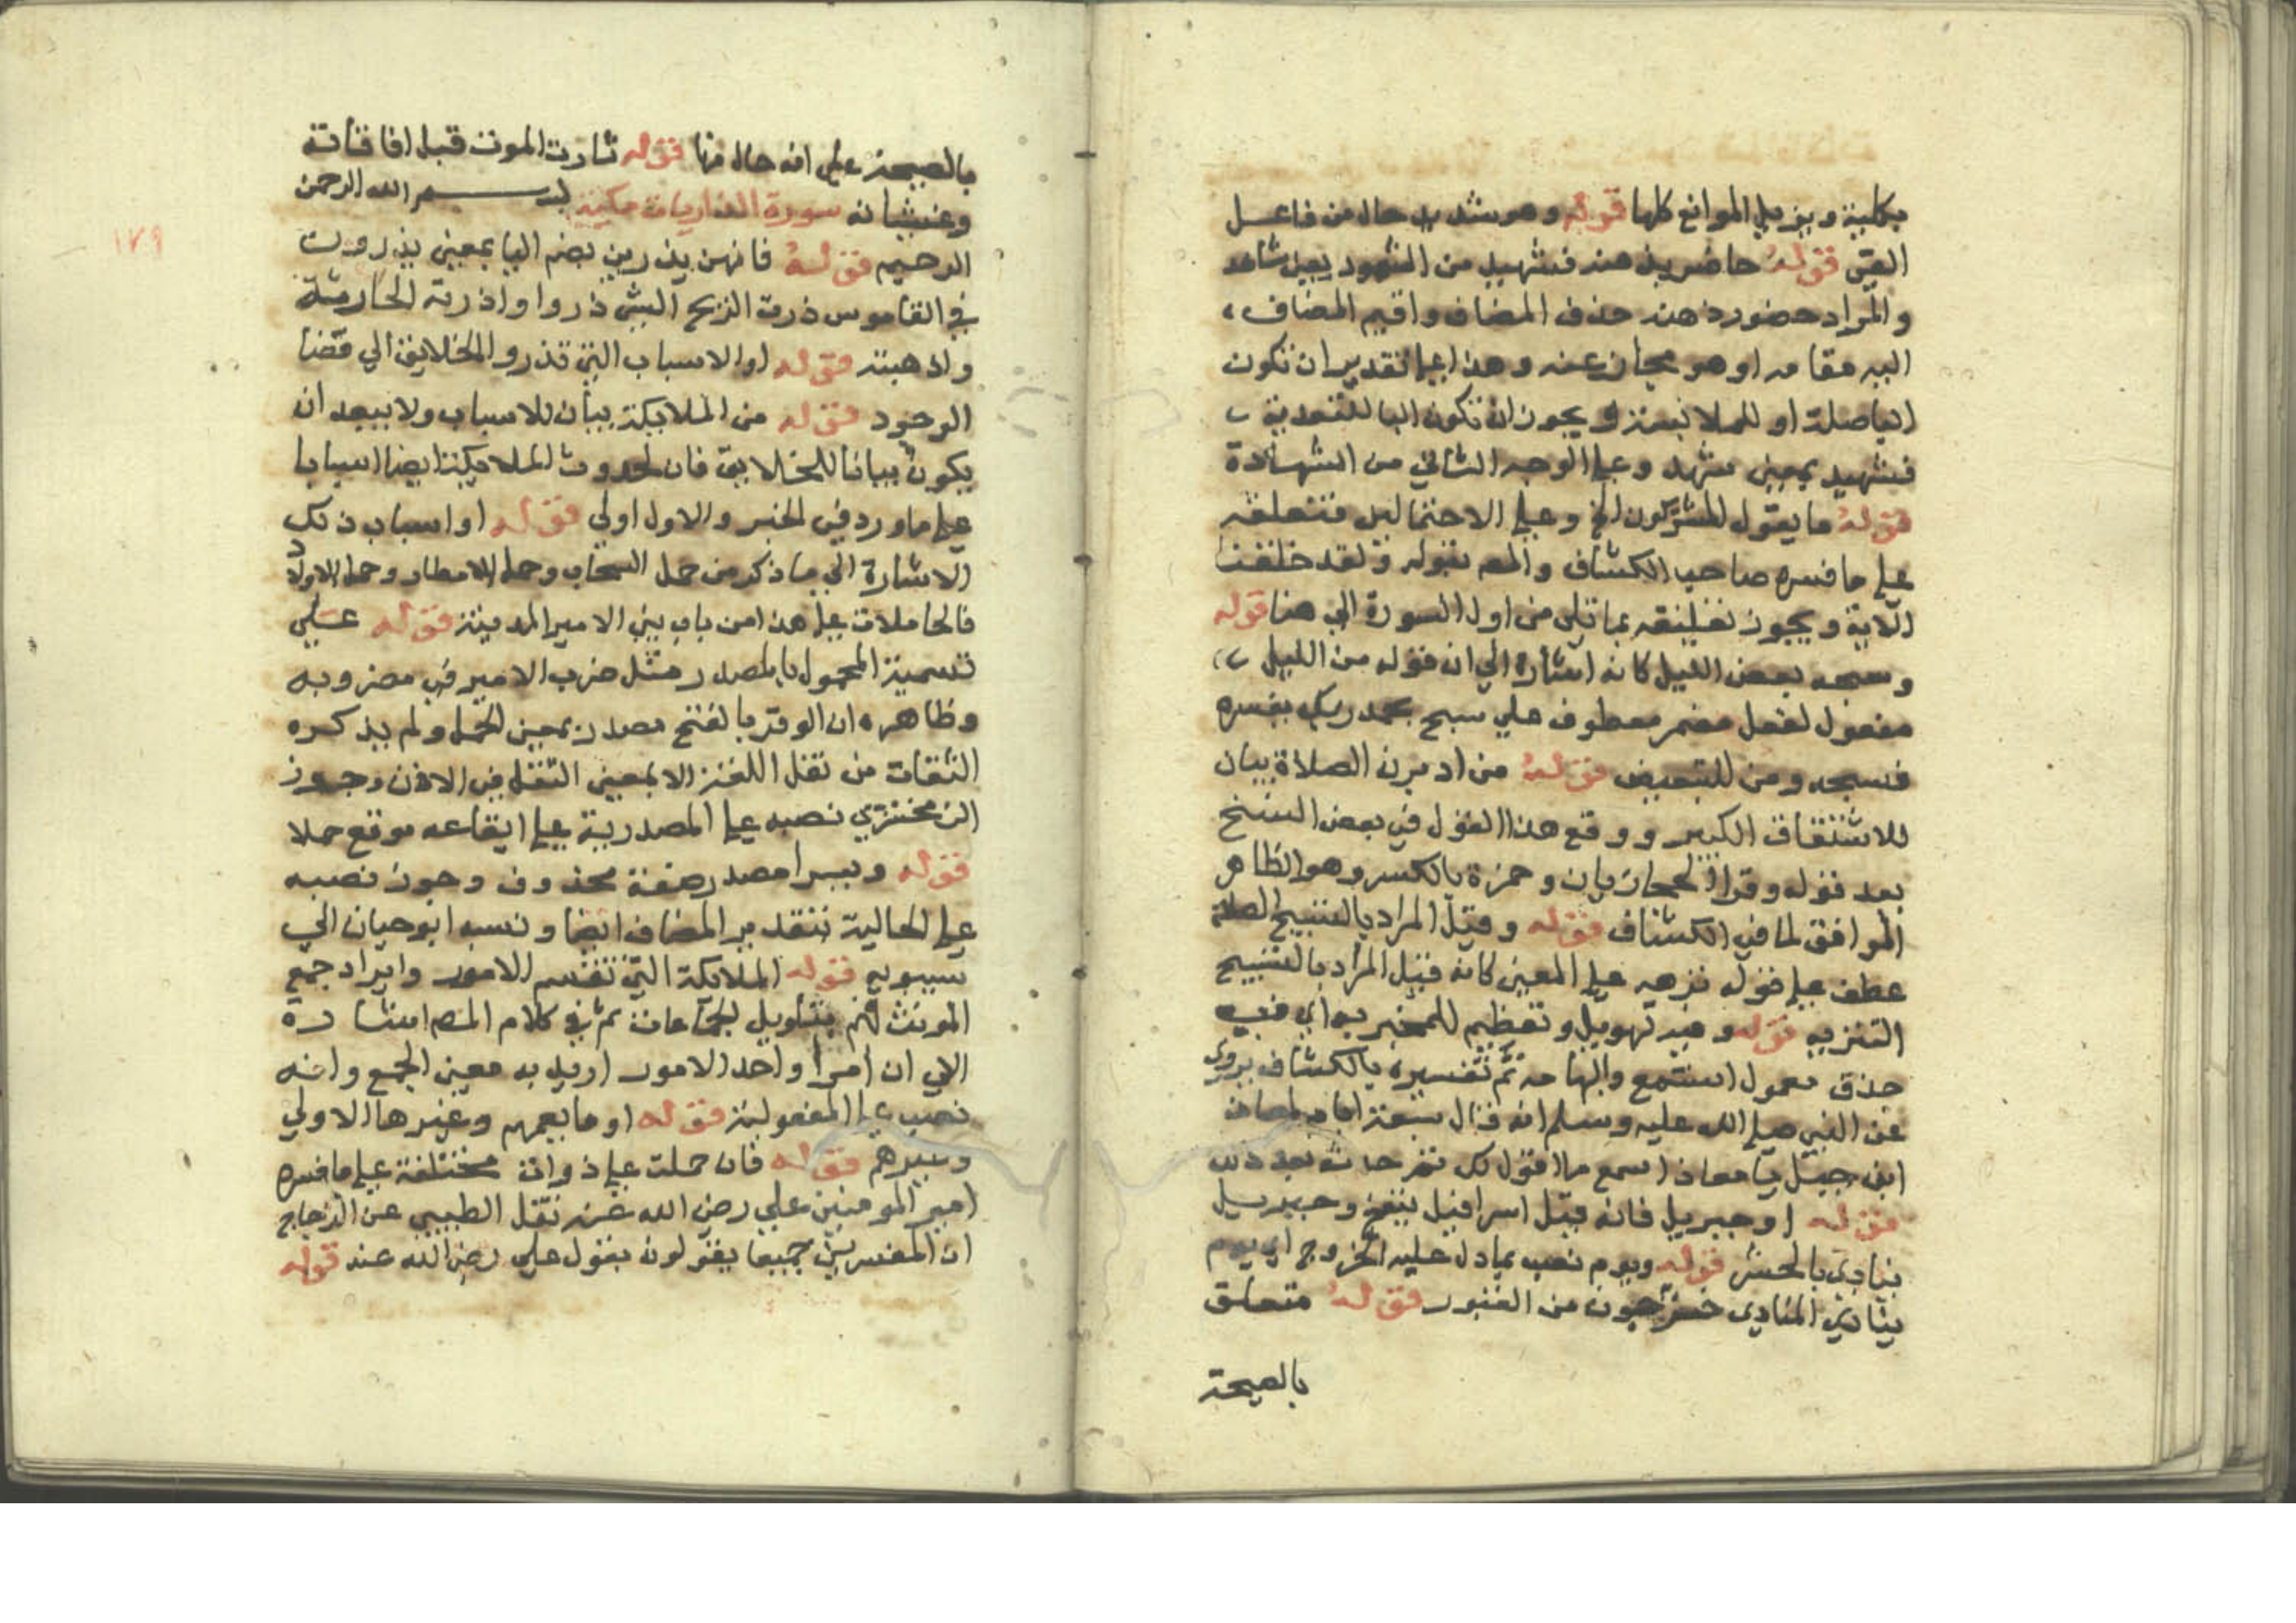 بكليته ويزيل الموانع كلها قوله وهو شهيد حال من فاعل
القى قوله حاضر بذهنه فشهيد من الشهود بمعنى شاهد
والمراد حضور ذهنه حذف المضاف واقيم المضاف
اليه مقامه او هو مجاز عنه وهذا على تقدير ان تكون
الباصلة او للملابسة ويجوز ان تكون البا للتعدية
فشهيد بمعنى مشهد وعلى الوجه الثاني من الشهادة
قوله ما يقول المشركون الخ وعلى الاحتمالين فتعلقه
على ما فسره صاحب الكشاف والمص بقوله ولقد خلقنا
الاية ويجوز تعليقه بما تلى من اول السورة الى هنا قوله
وسبحه بعض الليل كانه اشارة الى ان قوله من الليل
مفعول لفعل مضمر معطوف على سبح بحمد ربك يفسره
فسبحه ومن للتبعيض قوله من ادبرت الصلاة بيان
للاشتقاق الكبير ووقع هذا القول في بعض النسخ
بعد قوله وقرا الحجازيان وحمزة بالكسر وهو الظاهر
الموافق لما في الكشاف قوله وقيل المراد بالتسبيح الصلاة
عطف على قوله نزهه على المعنى كانه قيل المراد بالتسبيح
التنزيه قوله وفيه تهويل وتعظيم للمخبر به اي في
حذف معمول استمع وابهامه ثم تفسيره بالكشاف يروى
عن النبي صلى الله عليه وسلم انه قال سبعة ايام لمعاذ
ابن جبل يا معاذ اسمع ما اقول لك ثم حدثه بعد ذلك
قوله او جبريل فانه قيل اسرافيل ينفخ وجبريل
ينادى بالحشر قوله ويوم نصب بما دل عليه الخروج اي يوم
ينادي المنادى خرجون من القبور قوله متعلق
بالصيحة
بالصيحة على انه حال منها قوله ثارت الموت قبل افاقاته
وغشيانه سورة الذاريات مكية بسم الله الرحمن
الرحيم قوله فانهن يذرين بضم اليا بمعنى يذروت
في القاموس ذرت الريح الشي ذروا واذرته اطارته
واذهبته قوله او الاسباب التي تذرو الخلايق الي
الوجود قوله من الملايكة بيان للاسباب ولا يبعد ان
يكون بيانا للخلايق فان لحدوث الملايكة ايضا اسبابا
على ما ورد في الخبر والاول اولي قوله او اسباب ذلك
الاشارة الي ما ذكر من حمل السحاب وحمل الامطار وحمل الاولاد
فالحاملات على هذا من باب بنى الامير المدينة قوله على
تسمية المحمول بالمصدر مثل ضرب الامير في مضروبه
وظاهره ان الوقر بالفتح مصدر بمعنى الحمل ولم يذكره
الثقات من نقل اللغة الا بمعنى الثقل في الاذن وجوز
الزمخشري نصبه على المصدرية على ايقاعه موقع حملا
قوله ويسرا مصدر صفة محذوف وجوز نصبه
على الحالية بتقدير المضاف ايضا ونسبه ابو حيان الي
سيبويه قوله الملايكة التي تقسم الامور وايراد جمع
المونث لهم بتاويل الجماعات ثم في كلام المص اشارة
الي ان امرا واحد الامور اريد به معنى الجمع وانه
نصب على المفعولية قوله او ما يعمهم وغيرها الاولي
وغيرهم قوله فان حملت على ذوات مختلفة على ما فسره
امير المومنين علي رضي الله عنه نقل الطيبي عن الزجاج
ان المفسرين جميعا يقولون بقول علي رضي الله عنه قوله
١٧٩